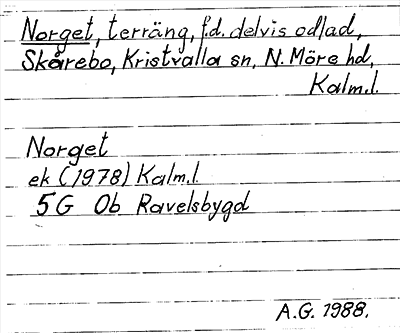 Norget, terräng, f.d. delvis odlad,
Skårebo, Kristvalla sn, N. Möre hd,
Kalm.l.
Norget
ek (1978) Kalm.l.
5G Ob Ravelsbygd
A.G. 1988.